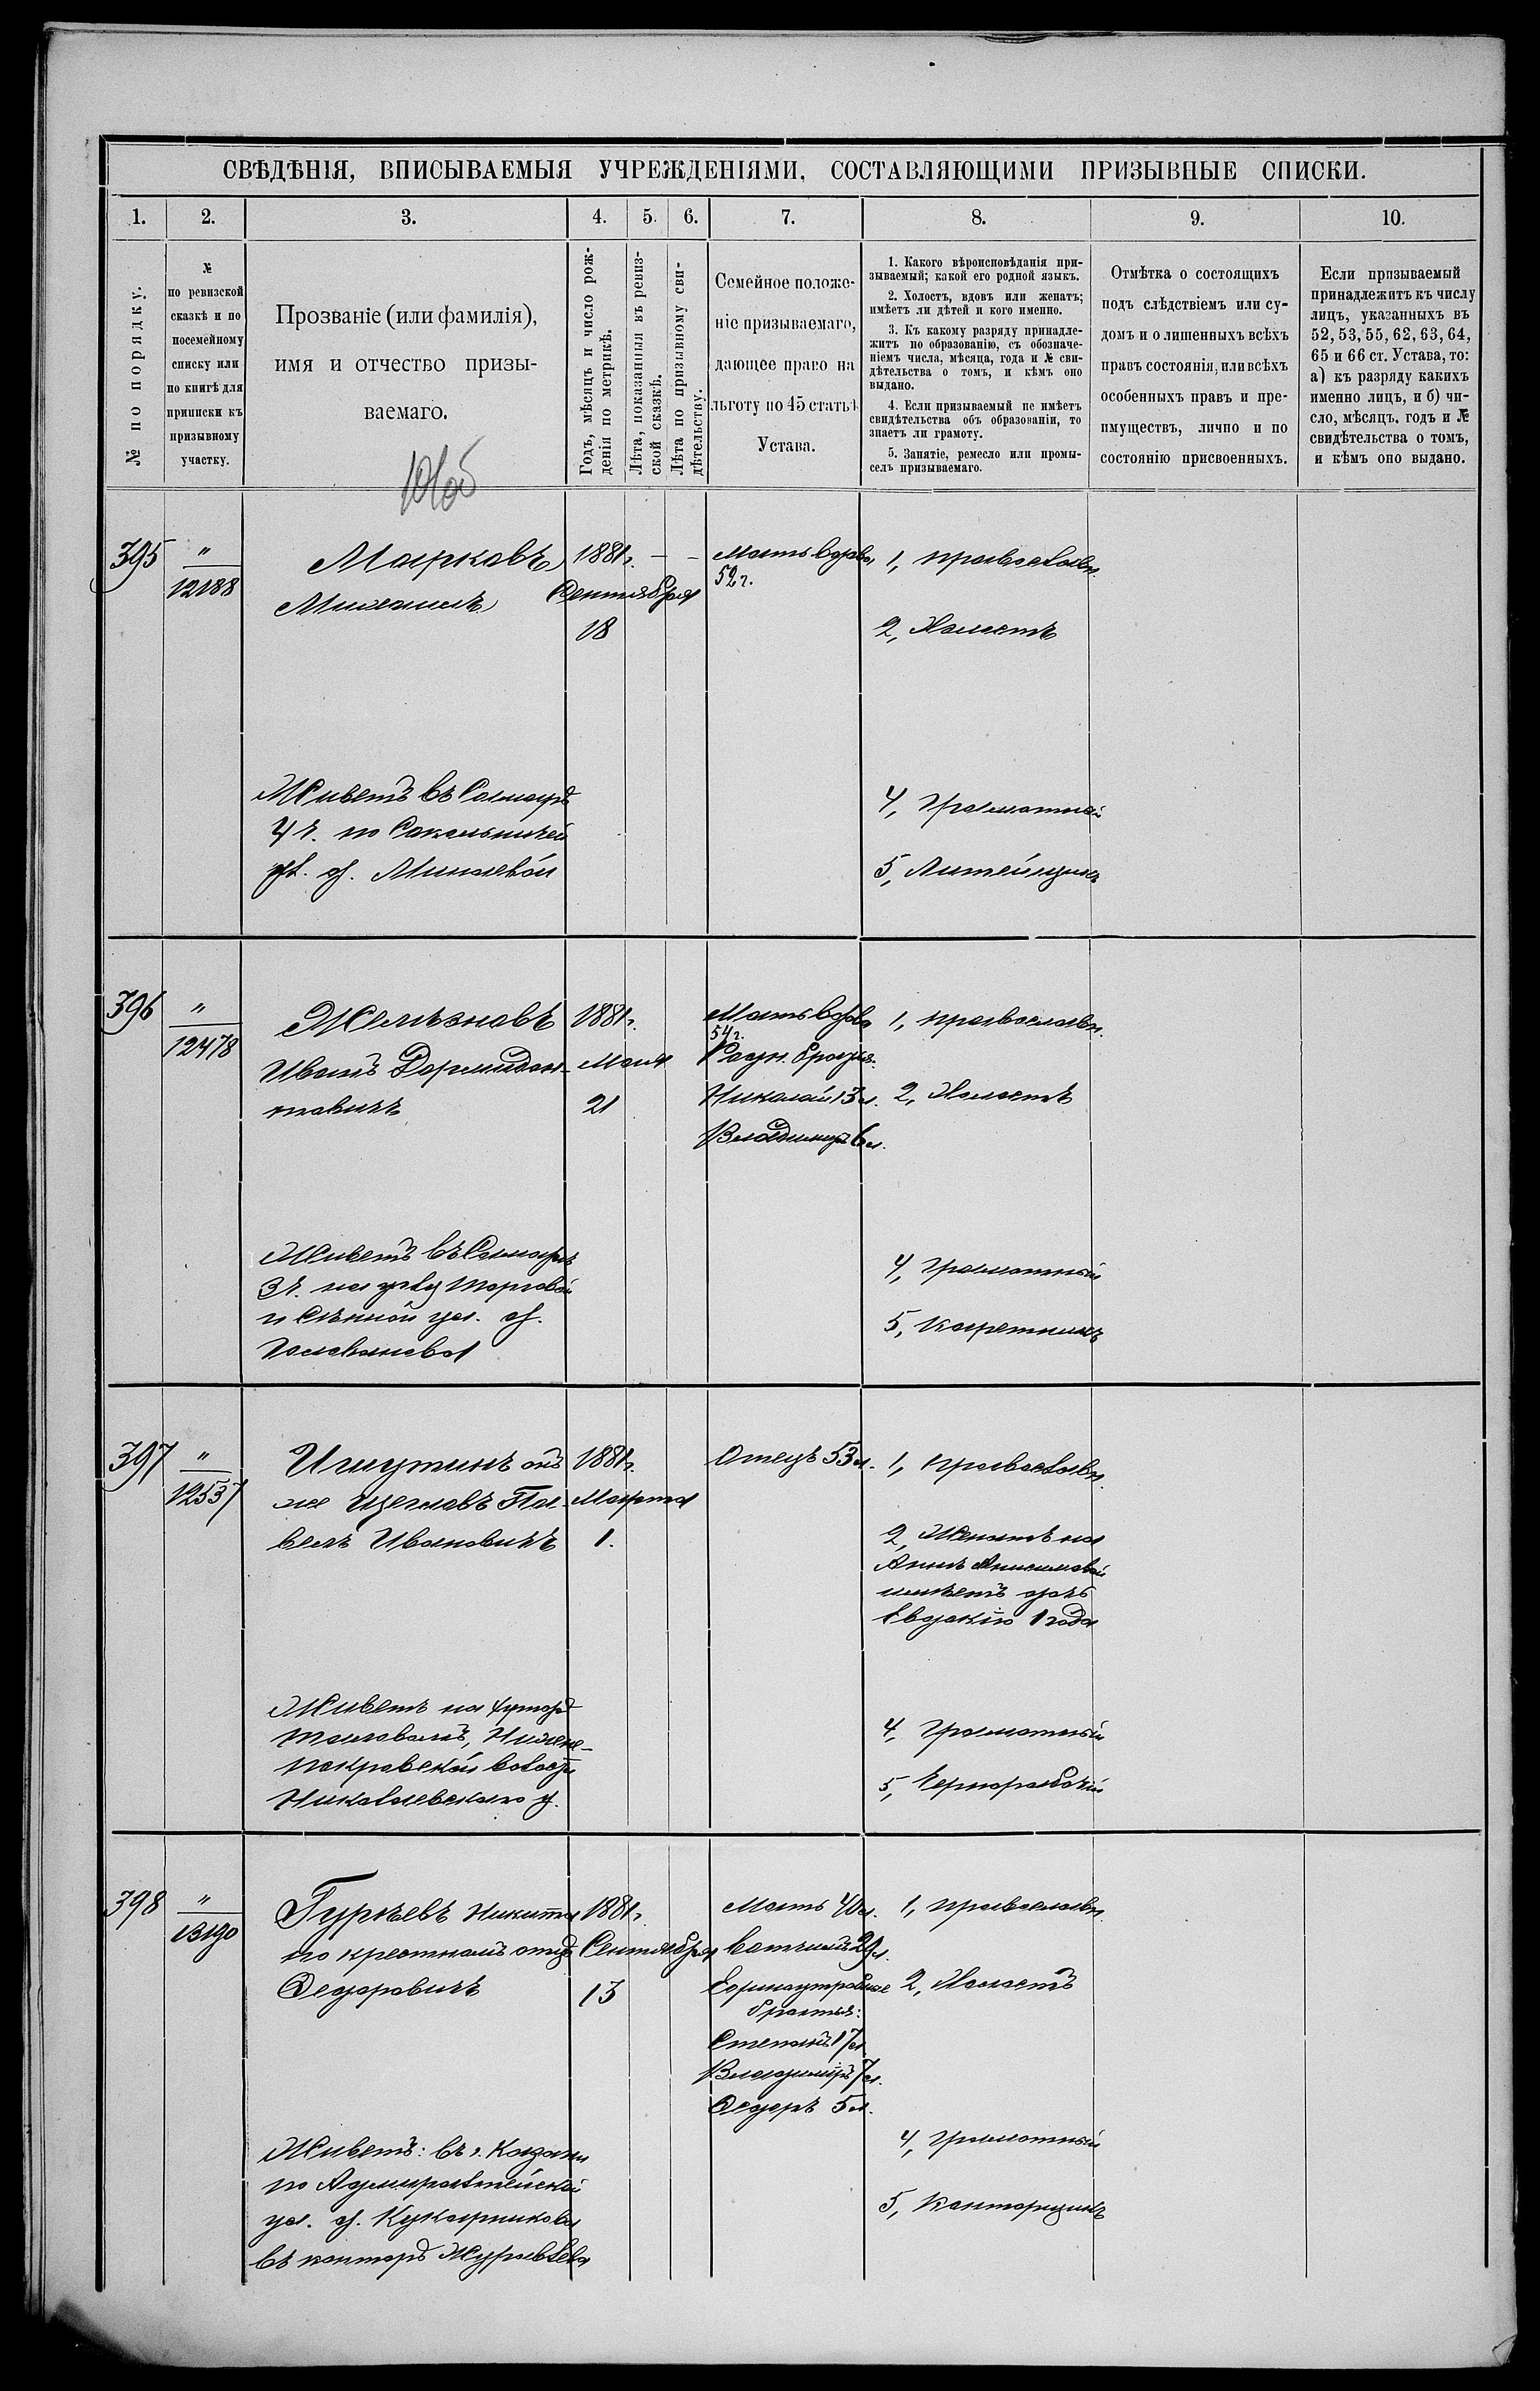 СВѢДѢНІЯ, ВПИСЫВАЕМЫЯ УЧРЕЖДЕНІЯМИ, СОСТАВЛЯЮЩИМИ ПРИЗЫВНЫЕ СПИСКИ.
1. 2. 3. 4. 5. 6. 7. 8. 9. 10.
№ по порядку.
№
по ревизской
сказкѣ и по
посемейному
списку или
по книгѣ для
приписки къ
призывному
участку.
Прозваніе (или фамилія),
имя и отчество призы-
ваемаго.
Годъ, мѣсяцъ и число рож-
денія по метрикѣ.
Лѣта, показанныя въ ревиз-
ской сказкѣ.
Лѣта по призывному сви-
дѣтельству.
Семейное положе-
ніе призываемаго,
дающее право на
льготу по 45 статьѣ
Устава.
1. Какого вѣроисповѣданія при-
зываемый; какой его родной языкъ.
2. Холостъ, вдовъ или женатъ;
имѣетъ ли дѣтей и кого именно.
3. Къ какому разряду принадле-
житъ по образованію, съ обозначе-
ніемъ числа, мѣсяца, года и № сви-
дѣтельства о томъ, и кѣмъ оно
выдано.
4. Если призываемый не имѣетъ
свидѣтельства объ образованіи, то
знаетъ ли грамоту.
5. Занятіе, ремесло или промы-
селъ призываемаго.
Отмѣтка о состоящихъ
подъ слѣдствіемъ или су-
домъ и о лишенныхъ всѣхъ
правъ состоянія, или всѣхъ
особенныхъ правъ и пре-
имуществъ, лично и по
состоянію присвоенныхъ.
Если призываемый
принадлежитъ къ числу
лицъ, указанныхъ въ
52, 53, 55, 62, 63, 64,
65 и 66 ст. Устава, то:
а) къ разряду какихъ
именно лицъ, и б) чи-
сло, мѣсяцъ, годъ и №
свидѣтельства о томъ,
и кѣмъ оно выдано.
395
"
12188
Марковъ
Михаилъ
1881г. — —
Сентября
18
Мать вдова
52 г.
1, православн.
2, Холостъ
Живетъ въ Самарѣ
4 ч. по Сокольничей
ул. д. Минаевой
4, Грамотный
5, Литейщикъ
396
"
12478
Желѣзновъ
Иванъ Дормидон-
товичъ
1881г.
Мая
21
Мать вдова
54 г.
Родн. братья:
Николай 13 л.
Владиміръ 6 л.
1, православн.
2, Холостъ
Живетъ въ Самарѣ
3 ч. на углу Торговой
и Сѣнной ул. д.
4, Грамотный
5, Каретникъ
397
"
12537
онъ
же Щегловъ Па-
велъ Ивановичъ
1881г.
Марта
1.
Отецъ 53 л.
1, православн.
2, Женатъ на
Аннѣ Анисимовой
имѣетъ дочь
Евдокію 1 года
Живетъ на хуторѣ
Таловомъ, Нижне-
покровской волости
Николаевскаго у.
4, Грамотный
5, Чернорабочій
398
"
13190
Гурьевъ Никита
по крестному отцу
Федоровичъ
1881г.
Сентября
13
Мать 40 л.
Вотчимъ 39 л.
Единоутробные
братья:
Степанъ 17 л.
Владиміръ 7 л.
Федоръ 5 л.
1, православн.
2, Холостъ
Живетъ: въ г. Казани
по Адмиралтейской
ул. д. Кукарникова
въ конторѣ Журавлева
4, Грамотный
5, Конторщикъ